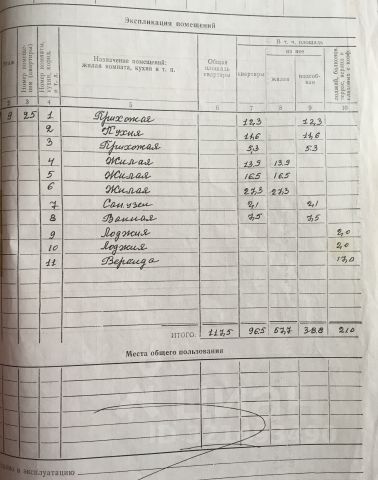 Экспликация помещений
Номер помещения (квартиры)
Номер комнаты, кухни, корид. и т. п.
Назначение помещений: жилая комната, кухня и т. п.
Общая площадь квартиры
В т. ч. площадь
квартиры
из нее
жилая
подсобная
2 3 4 5 6 7 8 9 10
9 25 1 Прихожая 12,3 12,3
2 Кухня 11,6 11,6
3 Прихожая 5.3 5.3
4 Жилая 13,9 13,9
5 Жилая 16.5 16.5
6 Жилая 27,3 27,3
7 Санузел 2,1 2,1
8 Ванная 7,5 7,5
9 Лоджия 2,0
10 Лоджия 2,0
11 Веранда 17,0
ИТОГО: 117,5 96.5 57,7 38.8 21.0
Места общего пользования
в эксплуатацию